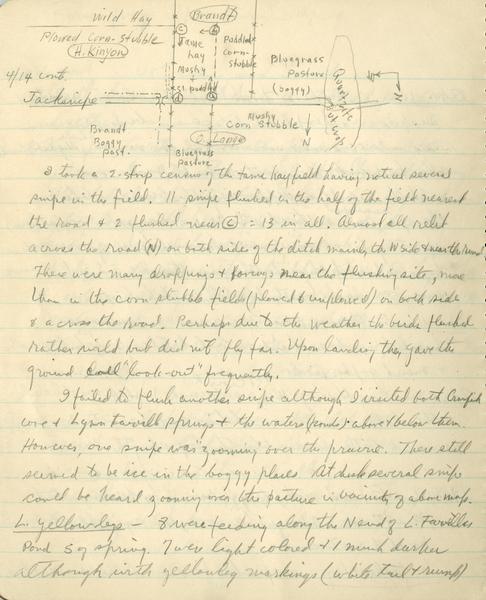 Wild Hay
Brandt
Plowed Corn-Stubble
(H. Kinyon)
c
b
Tame
hay
Mushy
Puddled
Corn-
Stubble
Bluegrass
Pasture
(boggy)
Quartzite
Out crop
W
N
4/14 cont.
Jacksnipe
d
a
Brandt
Boggy
Past.
Mushy
Corn Stubble
N
Lange
Bluegrass
Pasture
I took a 2-strip census of the tame hayfield having noticed several
snipe in the field. 11 snipe flushed in the half of the field nearest
the road & 2 flushed near (c) = 13 in all. Almost all relit
across the road (N) on both sides of the ditch mainly the W side & near the
There were many droppings & borings near the flushing site, more
than in the corn stubble fields (plowed & unplowed) on both side
& across the road. Perhaps due to the weather the birds flushed
rather wild but did not fly far. Upon landing they gave the
ground call "look-out" frequently.
I failed to flush another snipe although I visited both Crawfish
cove & Lynn Farvill springs & the waters (ponds) above & below them.
However, one snipe was "zooming" over the prairie. There still
seemed to be ice in the boggy places. At dusk several snipe
could be heard zooming over the pasture in vicinity of above map.
L. Yellowlegs - 8 were feeding along the N end of L. Farvilles
Pond S of spring. 7 were light colored & 1 much darker
although with yellowleg markings (white tail & rump)